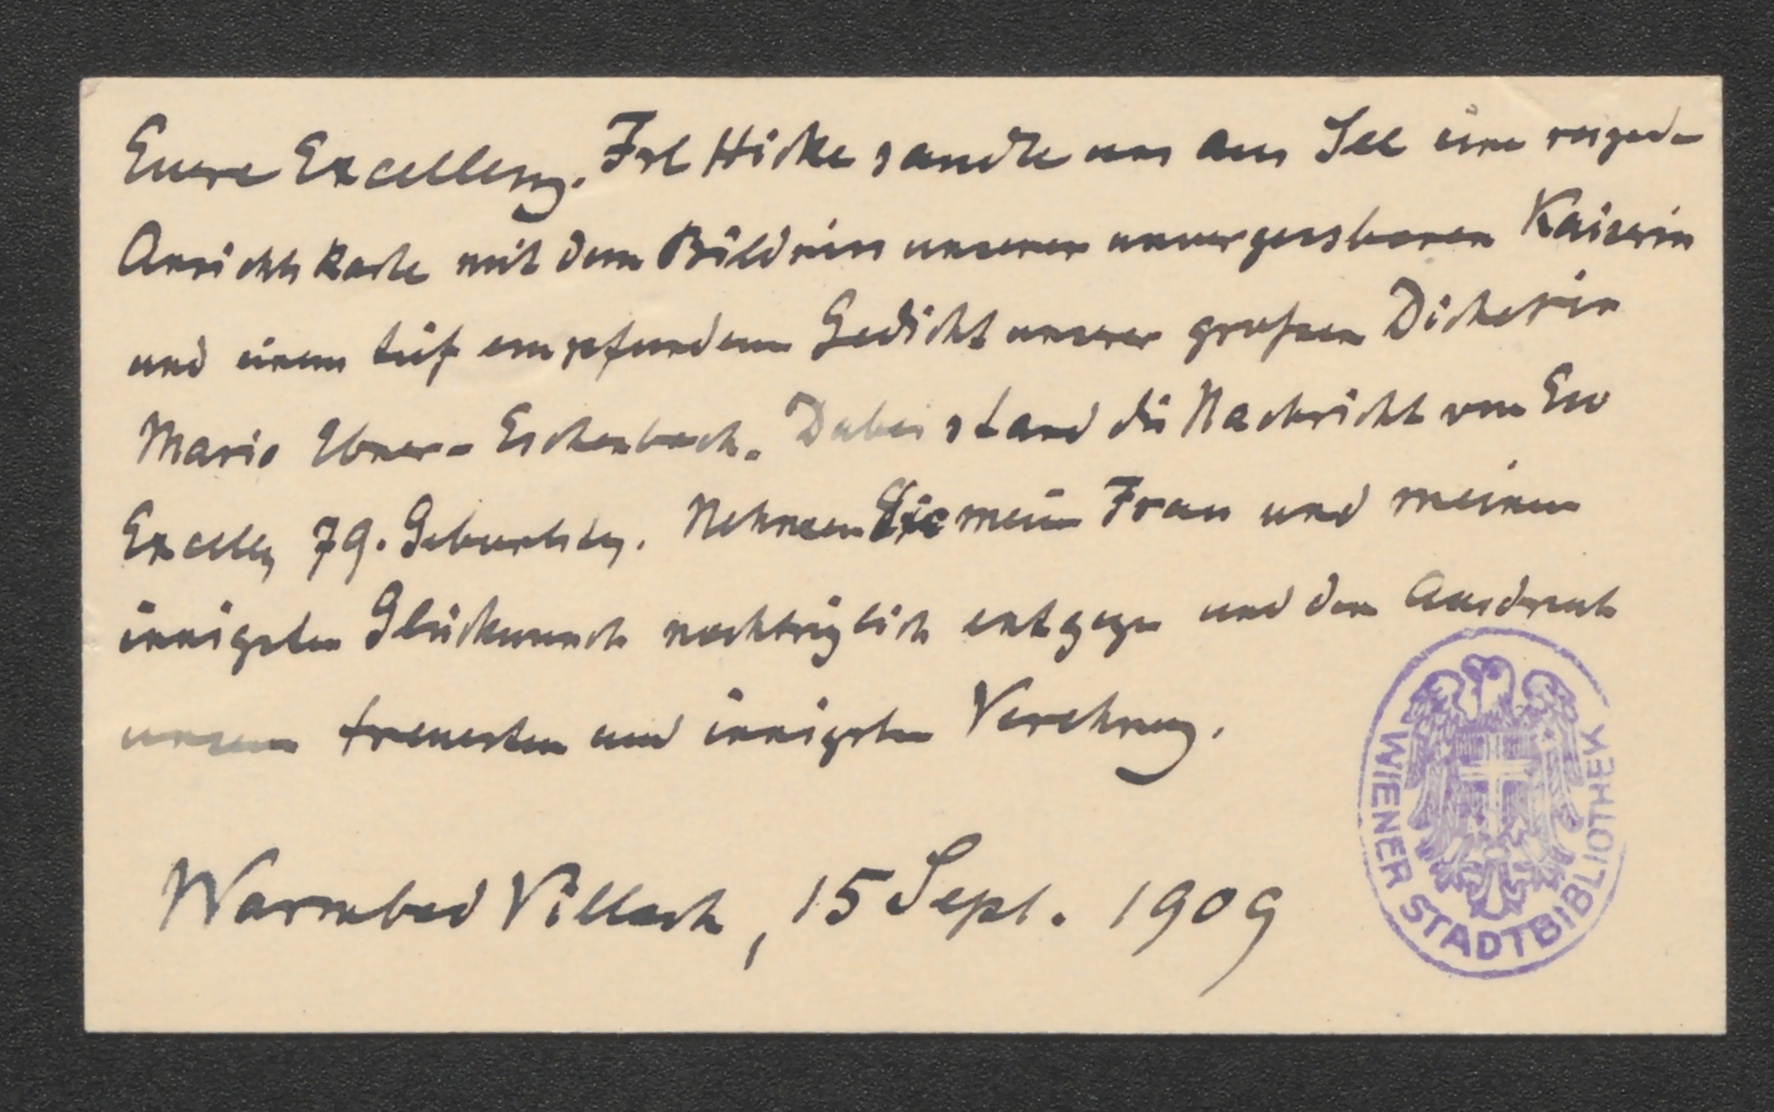 Euere Excellenz. Frl Hicke sandte uns aus Iscl eine
Ansichtskarte mit dem Bildniss unserer unvergessbaren Kaiserin
und einem tief empfundenen Gedicht unserer großen Dichterin
Marie Ebner-Eschenbach. Dabei stand die Nachricht von Ew
Excellz 79. Geburtstag. Nehmen Sie meiner Frau und meinen
innigsten Glückwunsch nachträglich entgegen und den Ausdruck
unserer treuesten und innigsten Verehrung.
Warmbad Villach, 15 Sept. 1909
WIENER STADTBIBLIOTHEK